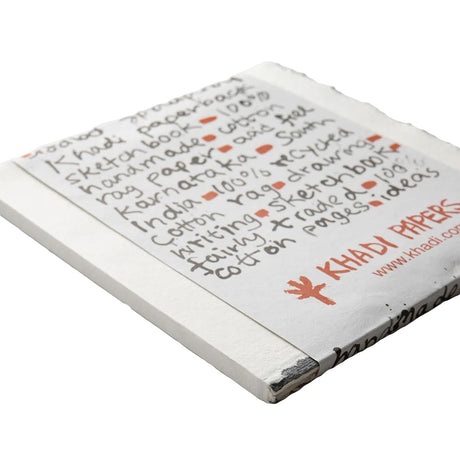 Khadi paperback
sketchbook 100%
handmade cotton
rag paper acid free
Karnataka South
India 100% recycled
Cotton rag drawing
writing sketchbook
fairly traded 100%
cotton pages ideas
KHADI PAPERS
www.khadi.com
handmade